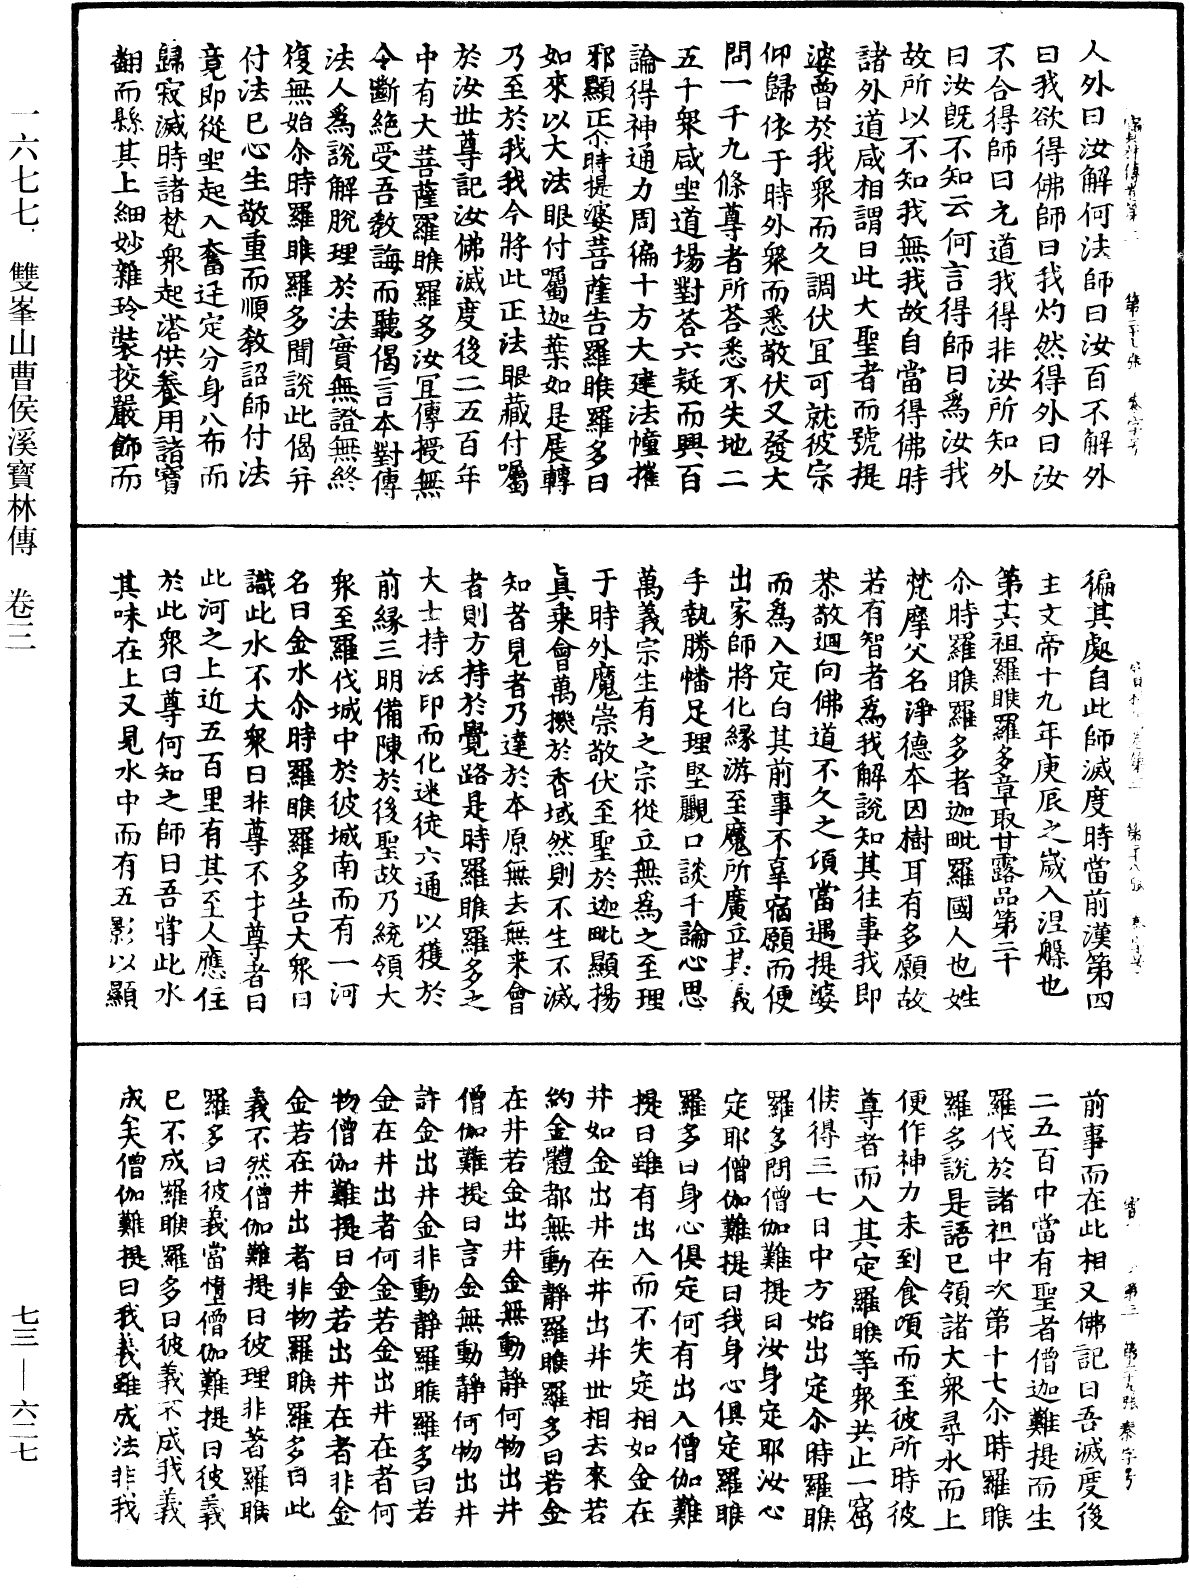 一六七七　雙峯山曹侯溪寶林傳　卷三
七三—六二七
人外曰汝解何法師曰汝百不解外
曰我欲得佛師曰我灼然得外曰汝
不合得師曰元道我得非汝所知外
曰汝旣不知云何言得師曰爲汝我
故所以不知我無我故自當得佛時
諸外道咸相謂曰此大聖者而號提
婆曾於我衆而久調伏冝可就彼宗
仰歸依于時外衆而悉敬伏又發大
問一千九條尊者所荅悉不失地二
五十衆咸坐道場對荅六疑而興百
論得神通力周徧十方大建法幢摧
邪顯正尒時提婆菩薩告羅睺羅多曰
如來以大法眼付囑迦葉如是展轉
乃至於我我今將此正法眼藏付囑
於汝世尊記汝佛滅度後二五百年
中有大菩薩羅睺羅多汝冝傳授無
令斷絶受吾教誨而聽偈言本對傳
法人爲說解脫理於法實無證無終
復無始尒時羅睺羅多聞說此偈幷
付法已心生敬重而順教詔師付法
竟即從坐起入奮迅定分身八布而
歸寂滅時諸梵衆起塔供養用諸寶
翻而縣其上細妙雜玲裝挍嚴飾而
徧其處自此師滅度時當前漢第四
主文帝十九年庚辰之歲入涅槃也
第十六祖羅睺羅多章取甘露品第二十
尒時羅睺羅多者迦毗羅國人也姓
梵摩父名淨德本因樹耳有多願故
若有智者爲我解說知其往事我即
恭敬迴向佛道不久之頃當遇提婆
而爲入定白其前事不辜宿願而便
出家師將化緣游至魔所廣立其義
手執勝幡足理堅䫫口談千論心思
萬義宗生有之宗從立無爲之至理
于時外魔崇敬伏至聖於迦毗顯揚
眞乘會萬機於香域然則不生不滅
知者見者乃達於本原無去無來會
者則方持於覺路是時羅睺羅多之
大士持法印而化迷徒六通以獲於
前緣三明備陳於後聖故乃統領大
衆至羅伐城中於彼城南而有一河
名曰金水尒時羅睺羅多告大衆曰
識此水不大衆曰非尊不才尊者曰
此河之上近五百里有其至人應住
於此衆曰尊何知之師曰吾嘗此水
其味在上又見水中而有五影以顯
前事而在此相又佛記曰吾滅度後
二五百中當有聖者僧迦難提而生
羅代於諸祖中次第十七尒時羅睺
羅多說是語已領諸大衆尋水而上
便作神力未到食頃而至彼所時彼
尊者而入其定羅睺等衆共止一窟
候得三七日中方始出定尒時羅睺
羅多問僧伽難提曰汝身定耶汝心
定耶僧伽難提曰我身心俱定羅睺
羅多曰身心俱定何有出入僧伽難
提曰雖有出入而不失定相如金在
井如金出井在井出井世相去來若
約金體都無動靜羅睺羅多曰若金
在井若金出井金無動靜何物出井
僧伽難提曰言金無動靜何物出井
許金出井金非動靜羅睺羅多曰若
金在井出者何金若金出井在者何
物僧伽難提曰金若出井在者非金
金若在井出者非物羅睺羅多曰此
義不然僧伽難提曰彼理非著羅睺
羅多曰彼義當墮僧伽難提曰彼義
已不成羅睺羅多曰彼義不成我義
成矣僧伽難提曰我義雖成法非我